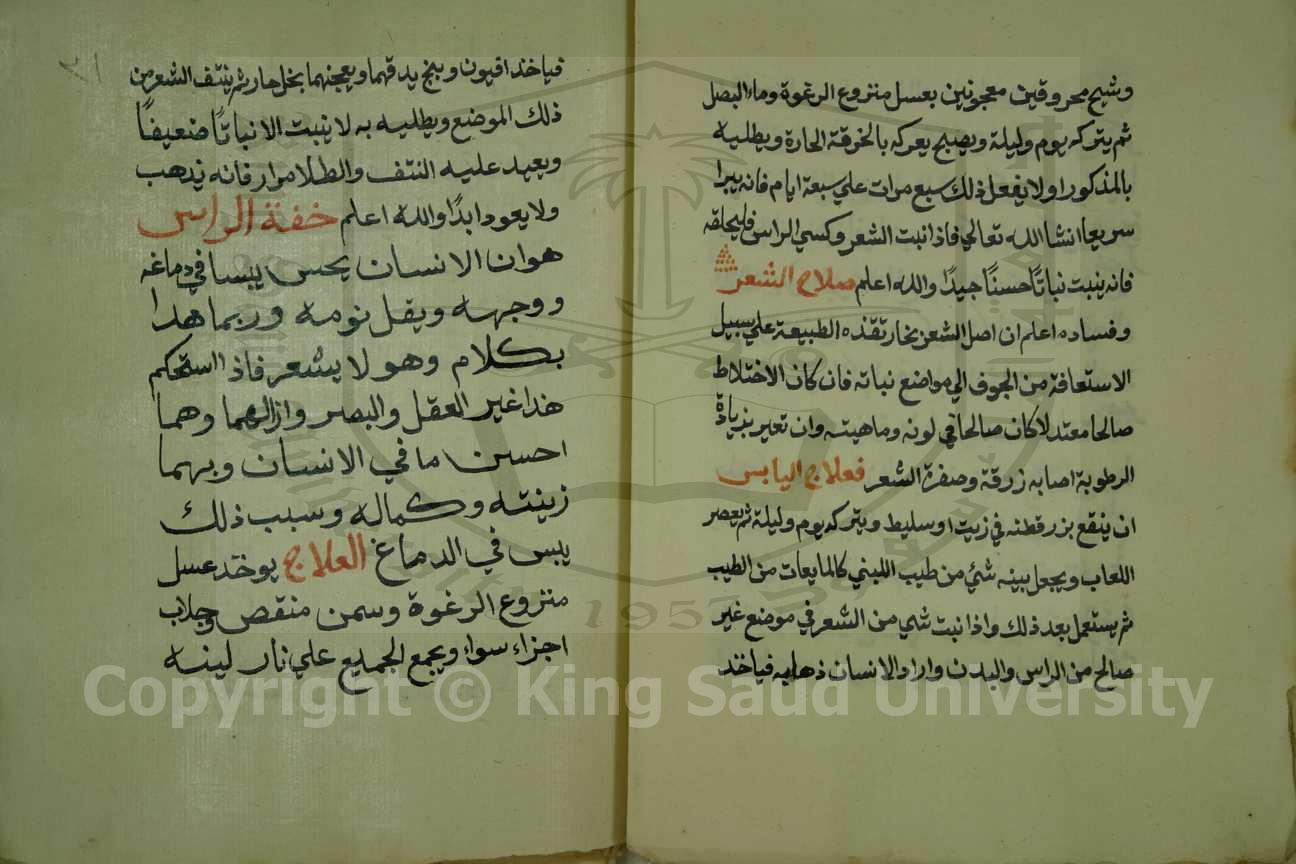 وشيح محروقين معجونين بعسل منزوع الرغوة وماء البصل
ثم يتركه يوم وليلة ويصبح يعركه بالخرقة الحارة ويطليه
بالمذكور اولا يفعل ذلك سبع مرات علي سبعة ايام فانه يبرا
سريعا انشا الله تعالي فاذا نبت الشعر وكسي الراس فليحلقه
فانه ينبت نباتًا حسنًا جيدًا والله اعلم صلاح الشعر
وفساده اعلم ان اصل الشعر بخار تقذه الطبيعة علي سبيل
الاستعافة من الجوف الي مواضع نباته فان كان الاختلاط
صالحا معتدلا كان صالحا في لونه وماهيته وان تعير بزيادة
الرطوبة اصابه زرقة وصفرة الشعر فعلاج اليابس
ان ينقع بزرقطنه في زيت او سليط ويتركه يوم وليلة ثم يعصر
اللعاب ويجعل بينه شئ من طيب اللبني كالمايعات من الطيب
ثم يستعمل بعد ذلك واذا نبت شي من الشعر في موضع غير
صالح من الراس والبدن واراد الانسان ذهابه فياخذ
٢١
فياخذ افيون وبنج يدقهما ويعجنهما بخل حار ثم ينتف الشعر من
ذلك الموضع ويطليه به لا ينبت الا نباتًا ضعيفًا
ويعيد عليه النتف والطلا مرار فانه يذهب
ولا يعود ابدًا والله اعلم خفة الراس
هو ان الانسان يحس يبسا في دماغه
ووجهه ويقل نومه وربما هدا
بكلام وهو لا يشعر فاذا استحكم
هذا غير العقل والبصر وازالهما وهما
احسن ما في الانسان وبهما
زينته وكماله وسبب ذلك
يبس في الدماغ العلاج يوخذ عسل
منزوع الرغوة وسمن منقص وجلاب
اجزاء سواء ويجمع الجميع علي نار لينه
Copyright © King Saud University
1957